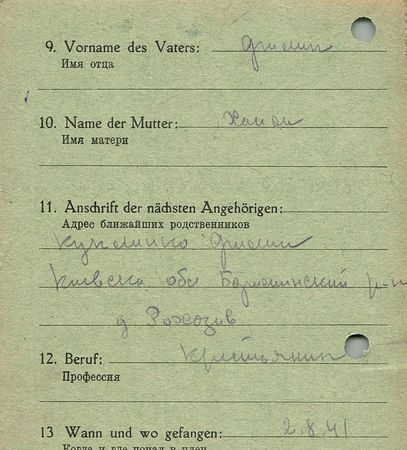 9. Vorname des Vaters: Филип
Имя отца
10. Name der Mutter:
Имя матери
11. Anschrift der nächsten Angehörigen:
Адрес ближайших родственников
Филип
обл р-н
д Рожозив
12. Beruf: Крестьянин
Профессия
13 Wann und wo gefangen: 2.8.41
Когда и где попал в плен